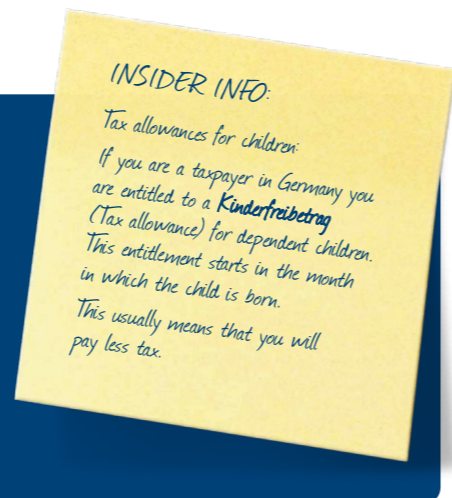 INSIDER INFO:
Tax allowances for children:
If you are a taxpayer in Germany you
are entitled to a Kinderfreibetrag
(Tax allowance) for dependent children.
This entitlement starts in the month
in which the child is born.
This usually means that you will
pay less tax.